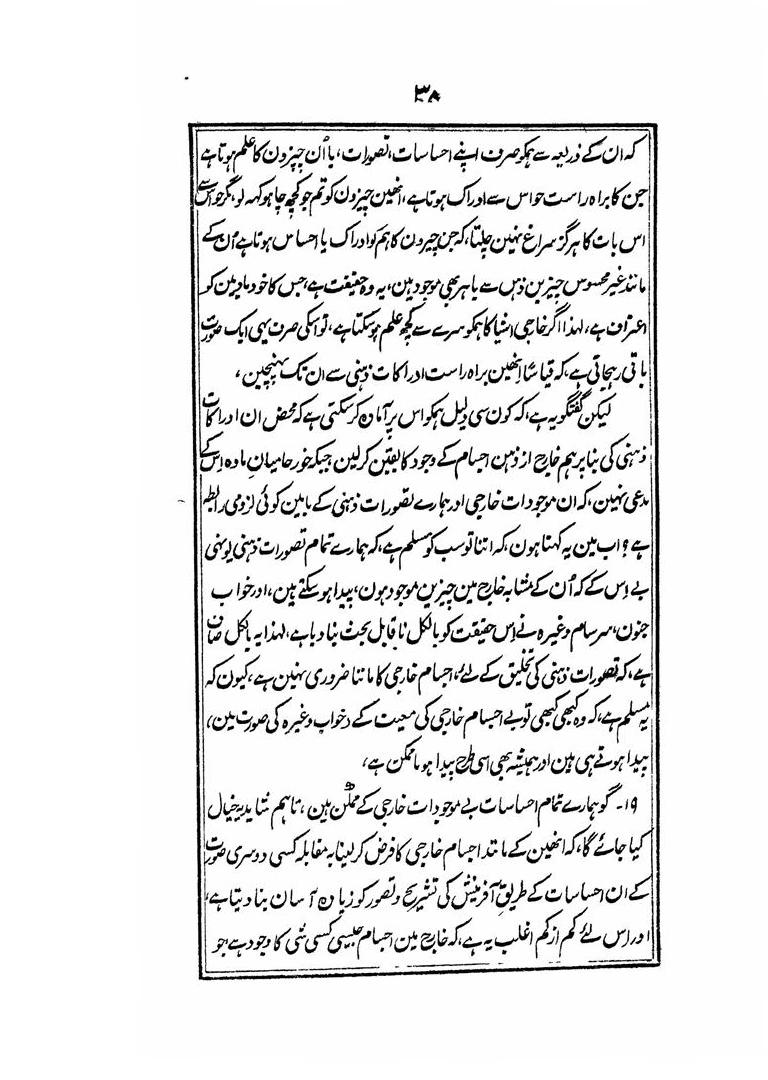 ۳۸
کہ ان کے ذریعہ سے ہمکو صرف اپنے احساسات، تصورات، یا اُن چیزون کا علم ہوتا ہے
جن کا براہ راست حواس سے ادراک ہوتا ہے، انھین چیزون کو تم جو کچھ چاہو کہہ لو، مگر حواس سے
اس بات کا ہرگز سراغ نہین چلتا، کہ جن چیزون کا ہم کو ادراک یا احساس ہوتا ہے اُن کے
مانند غیر محسوس چیزین ذہن سے باہر بھی موجود ہین، یہ وہ حقیقت ہے، جس کا خود مادیین کو
اعتراف ہے، لہذا اگر خارجی اشیا کا ہمکو سرے سے کچھ علم ہو سکتا ہے، تو اسکی صرف یہی ایک صورت
باقی رہجاتی ہے، کہ قیاساً انھین براہ راست ادراکات ذہنی سے ان تک پہنچین،
لیکن گفتگو یہ ہے، کہ کون سی دلیل ہمکو اس پر آمادہ کر سکتی ہے کہ محض ان ادراکات
ذہنی کی بنا پر ہم خارج از ذہن اجسام کے وجود کا یقین کر لین جبکہ خود حامیانِ مادہ اِس کے
مدعی نہین، کہ ان موجودات خارجی اور ہمارے تصورات ذہنی کے مابین کوئی لزومی رابطہ
ہے؟ اب مین یہ کہتا ہون، کہ اتنا تو سب کو مسلم ہے، کہ ہمارے تمام تصورات ذہنی یونہی
بے اِس کے کہ اُن کے مشابہ خارج مین چیزین موجود ہون، پیدا ہو سکتے ہین، اور خواب
جنون، سرسام وغیرہ نے اِس حقیقت کو بالکل ناقابل بحث بنا دیا ہے، لہذا یہ بالکل صاف
ہے، کہ تصورات ذہنی کی تخلیق کے لیے، اجسام خارجی کا ماننا ضروری نہین ہے، کیون کہ
یہ مسلم ہے، کہ وہ کبھی کبھی تو بے اجسام خارجی کی معیت کے (خواب وغیرہ کی صورت مین)
پیدا ہوتے ہی ہین اور ہمیشہ بھی اسی طرح پیدا ہونا ممکن ہے،
۱۹- گو ہمارے تمام احساسات بے موجودات خارجی کے ممکن ہین، تاہم شاید یہ خیال
کیا جائے گا، کہ انھین کے مانند اجسام خارجی کا فرض کر لینا بہ مقابلہ کسی دوسری صورت
کے ان احساسات کے طریق آفرینش کی تشریح و تصور کو زیادہ آسان بنا دیتا ہے،
اور اِس لئے کم از کم اغلب یہ ہے، کہ خارج مین اجسام جیسی کسی شی کا وجود ہے جو